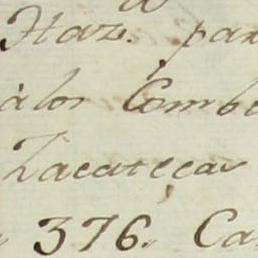 Haz. par
álos Comb
Zacatecas
376. Ca